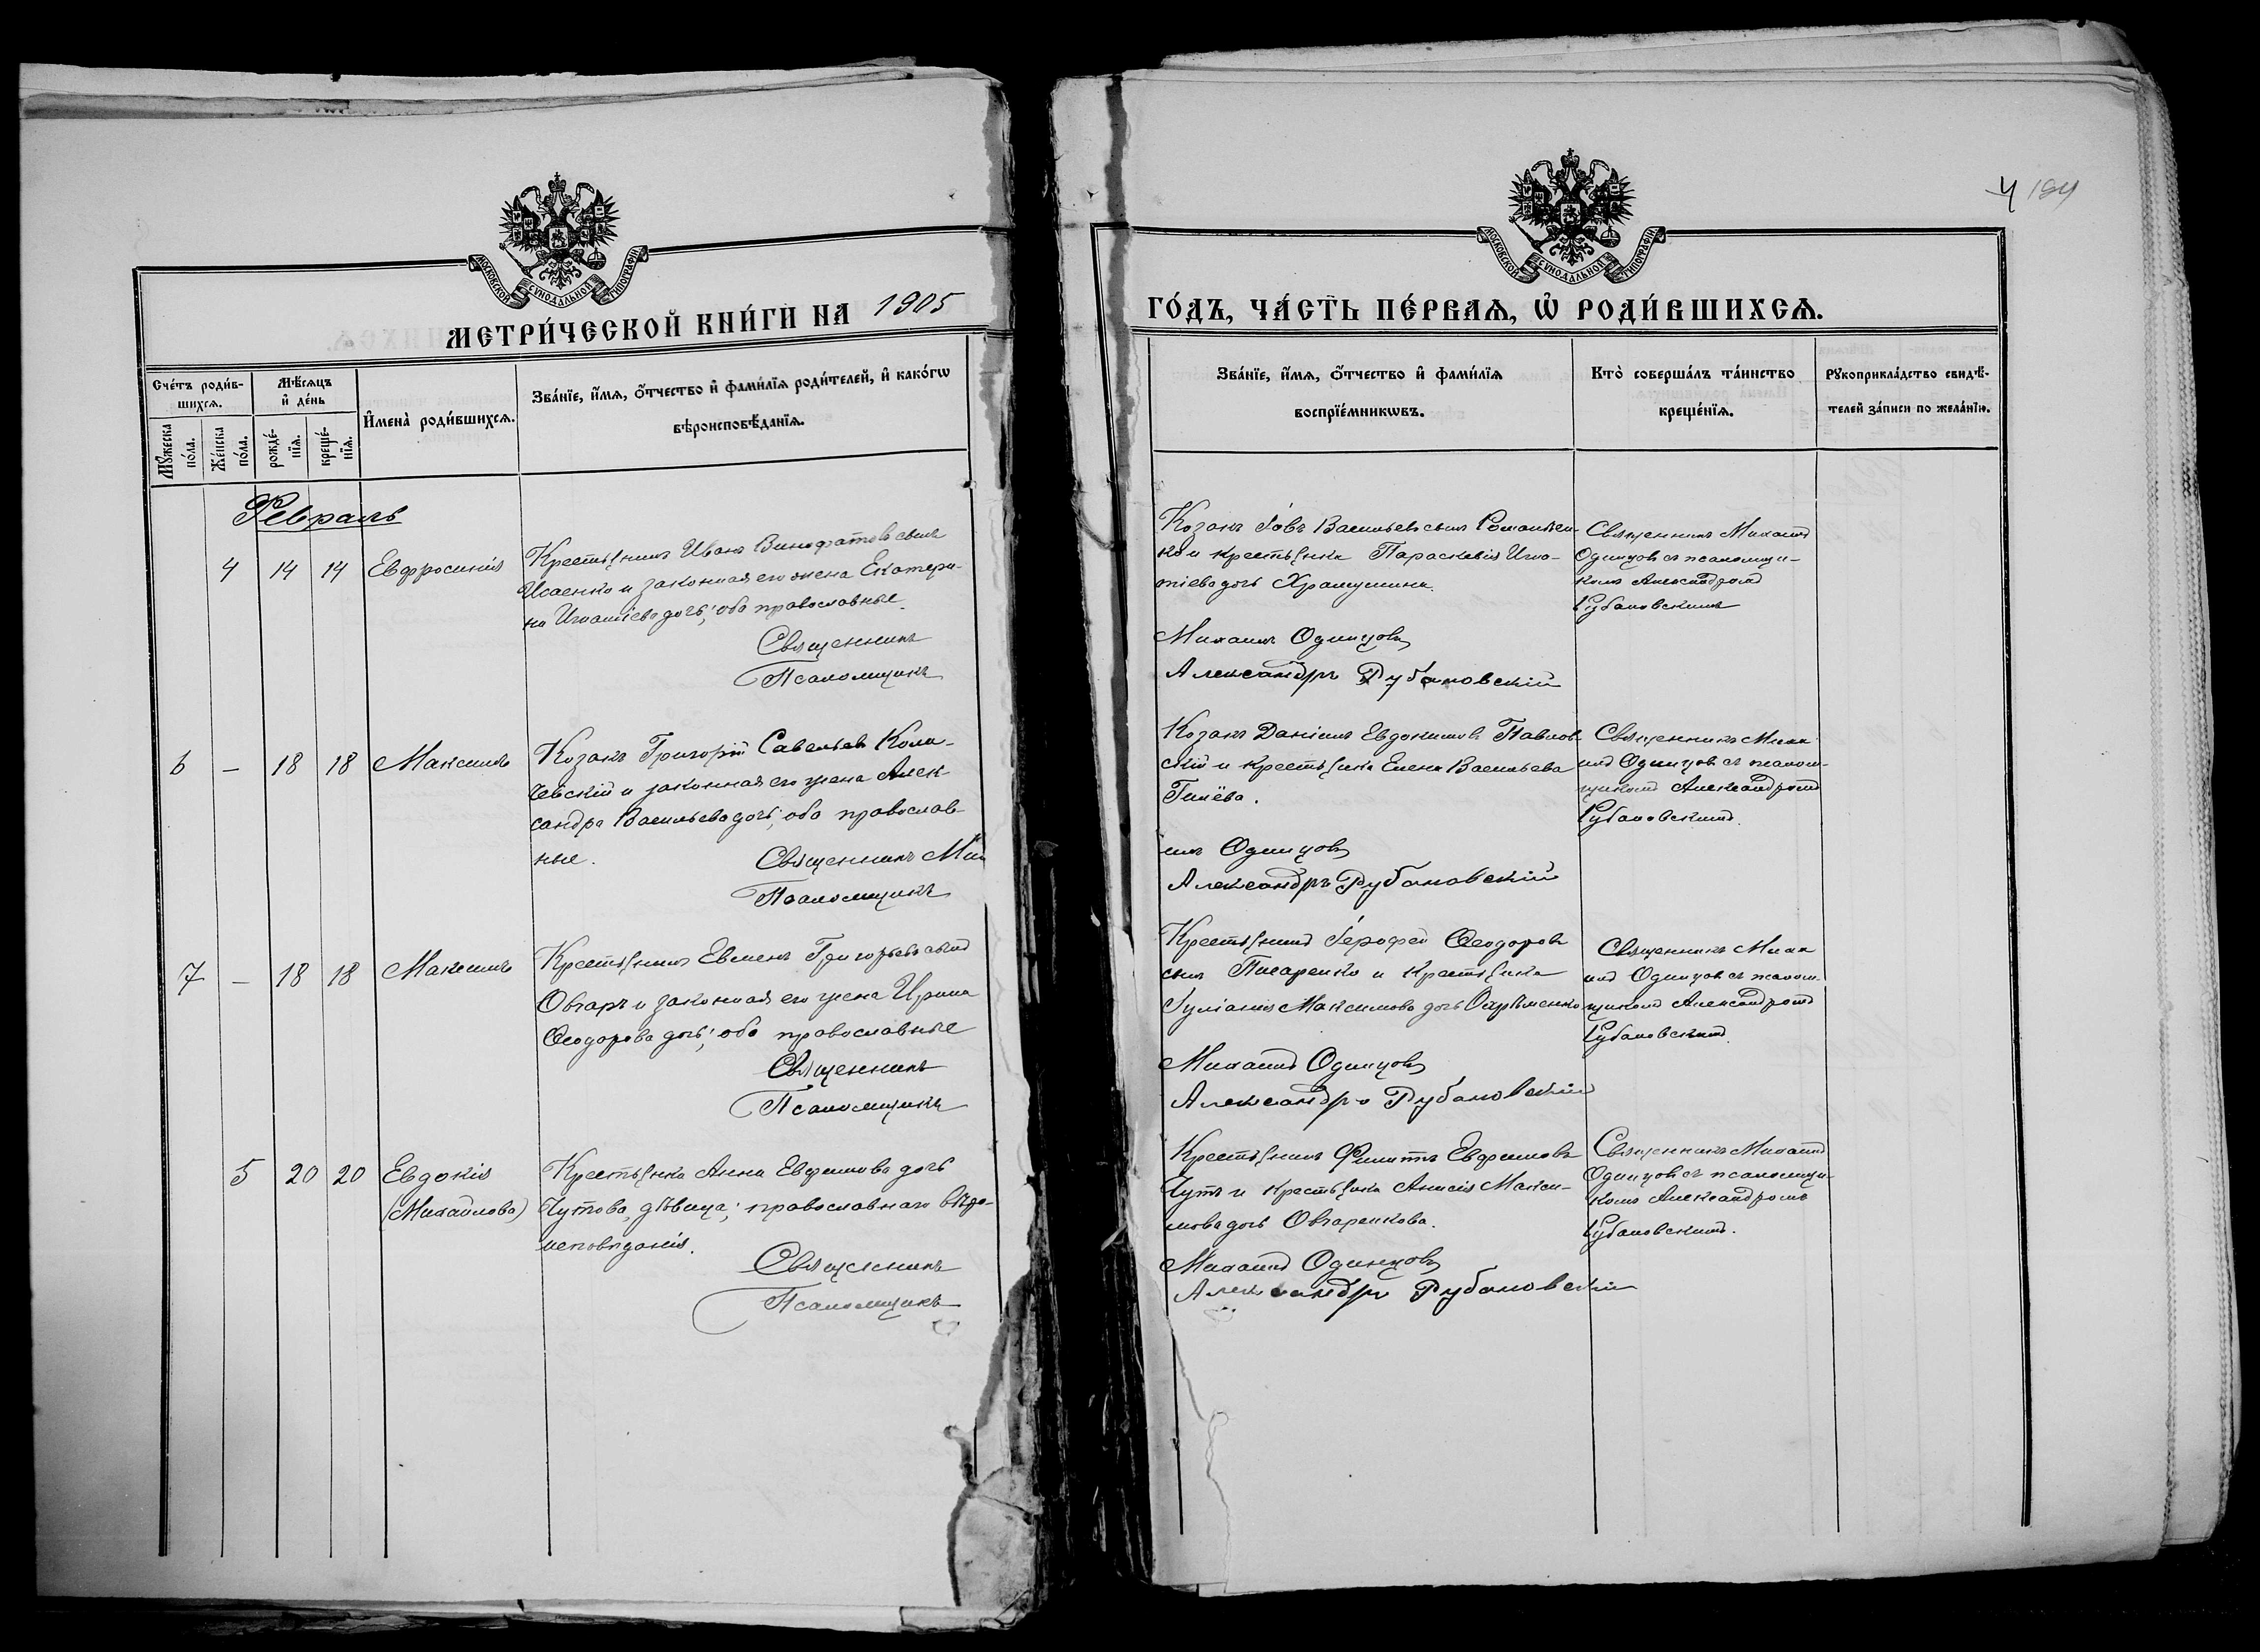 МОСКОВСКОЙ СѴНОДАЛЬНОЙ ТИПОГРАФІИ
МЕТРИ́ЧЕСКОЙ КНИ́ГИ НА 1905
Сче́тъ роди́в-
шихсѧ.
Мѣ́сѧцъ
и҆ де́нь
Мꙋ́жеска
по́ла.
Же́нска
по́ла.
рожде́-
нїѧ.
креще́-
нїѧ.
И҆мена̀ роди́вшихсѧ.
Зва́нїе, и҆́мѧ, ѻ҆́тчество и҆ фами́лїѧ роди́телей, и҆ како́гѡ
вѣроисповѣ́данїѧ.
Февраль
4 14 14 Евфросинія
Крестьянинъ Иванъ Винефатовъ сынъ
Исаенко и законная его жена Екатери-
на Игнатіева дочь; оба православные.
Священникъ
Псаломщикъ
6 – 18 18 Максимъ
Козакъ Григорій Савельевъ Кола-
чевскій и законная его жена Алек-
сандра Васильева дочь; оба православ-
ные. Священникъ Миха
Псаломщикъ
7 – 18 18 Максимъ
Крестьянинъ Евменъ Григорьевъ сынъ
Овчаръ и законная его жена Ирина
Ѳеодорова дочь; оба православные
Священникъ
Псаломщикъ
5 20 20 Евдокія
(Михайлова)
Крестьянка Анна Евфимова дочь
Чутова, дѣвица; православнаго вѣро-
исповѣданія.
Священникъ
Псаломщикъ
4 184
МОСКОВСКОЙ СѴНОДАЛЬНОЙ ТИПОГРАФІИ
ГО́ДЪ, ЧА́СТЬ ПЕ́РВАѦ, Ѽ РОДИ́ВШИХСѦ.
Зва́нїе, и҆́мѧ, ѻ҆́тчество и҆ фами́лїѧ
воспрїе́мникѡвъ.
Кто̀ соверша́лъ та́инство
креще́нїѧ.
Рꙋкоприкла́дство свидѣ́-
телей за́писи по жела́нїю.
Козакъ Іовъ Васильевъ сынъ Романен-
ко и крестьянка Параскевія Игна-
тіева дочь Храпушина.
Михаилъ Одинцовъ
Александръ Рубановскій
Священникъ Михаилъ
Одинцовъ съ псаломщи-
комъ Александромъ
Рубановскимъ
Козакъ Даніилъ Евдокимовъ Павлов-
скій и крестьянка Елена Васильева
Гилёва.
илъ Одинцовъ
Александръ Рубановскій
Священникъ Миха
илъ Одинцовъ съ псалом-
щикомъ Александромъ
Рубановскимъ.
Крестьянинъ Іерофей Ѳеодоровъ
сынъ Писаренко и крестьянка
Іуліанія Максимова дочь Охрѣменко
Михаилъ Одинцовъ
Александръ Рубановскій
Священникъ Миха
илъ Одинцовъ съ псалом-
щикомъ Александромъ
Рубановскимъ.
Крестьянинъ Филиппъ Евфимовъ
Чутъ и крестьянка Анисія Макси-
мова дочь Овчаренкова.
Михаилъ Одинцовъ
Александръ Рубановскій
Священникъ Михаилъ
Одинцовъ съ псаломщи-
комъ Александромъ
Рубановскимъ.